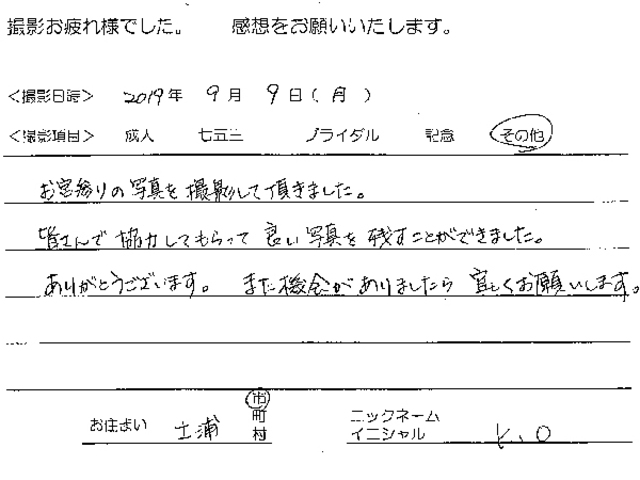 撮影お疲れ様でした。 感想をお願いいたします。
<撮影日時> 2019年 9月 9日(月)
<撮影項目> 成人 七五三 ブライダル 記念 その他
お宮参りの写真を撮影して頂きました。
皆さんで協力してもらって良い写真を残すことができました。
ありがとうございます。 また機会がありましたら宜しくお願いします。
お住まい 土浦 市 町 村
ニックネーム イニシャル K.O